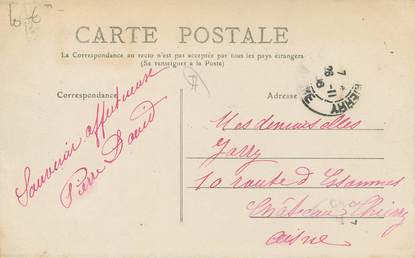 CARTE POSTALE
La Correspondance au recto n'est pas acceptée par tous les pays étrangers
(Se renseigner à la Poste)
Correspondance
Adresse
Souvenir affectueux
Pierre David
Mesdemoiselles
Garry
10 route d'Essommes
Château Thierry
Aisne
7
THIERRY
7 - 11